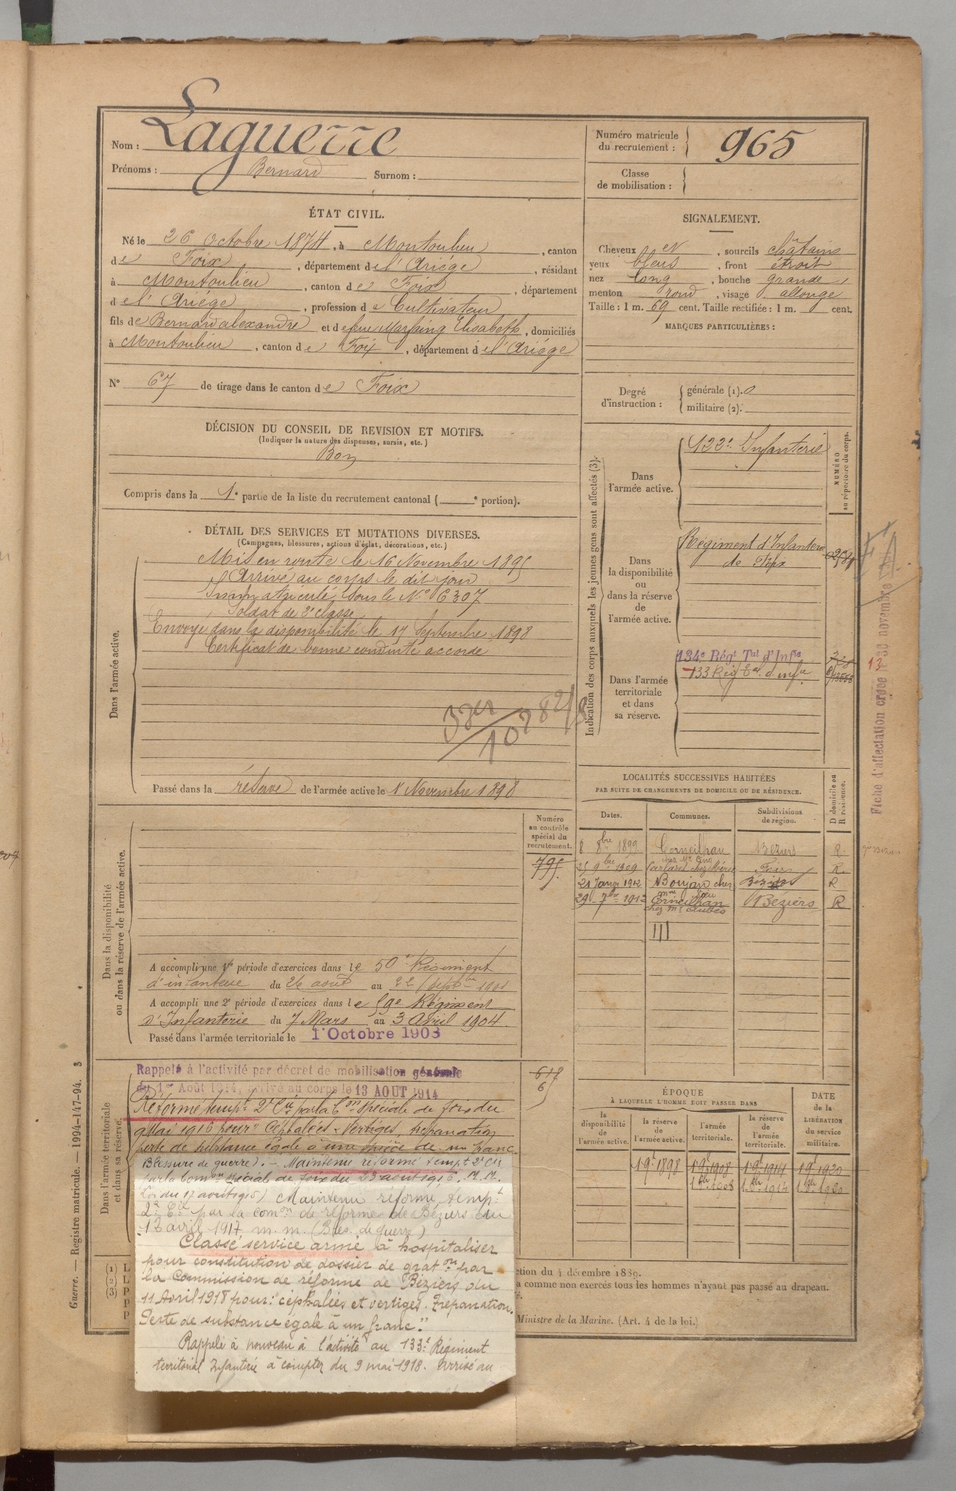 Nom : Laguerre
Prénoms : Bernard Surnom :
Numéro matricule du recrutement : 965
Classe de mobilisation :
ÉTAT CIVIL.
Né le 26 Octobre 1874, à Montoulieu, canton
de Foix, département de l'Ariège, résidant
à Montoulieu, canton de Foix, département
de l'Ariège, profession de Cultivateur
fils de Bernard alexandre et de feue Marfaing Elisabeth, domiciliés
à Montoulieu, canton de Foix, département de l'Ariège
N° 67 de tirage dans le canton de Foix
SIGNALEMENT.
Cheveux , sourcils châtains
yeux bleus, front étroit
nez long, bouche grande
menton rond, visage allongé
Taille : 1 m. 69 cent. Taille rectifiée : 1 m. cent.
MARQUES PARTICULIÈRES :
Degré d'instruction : générale (1). 0
militaire (2).
DÉCISION DU CONSEIL DE REVISION ET MOTIFS.
(Indiquer la nature des dispenses, sursis, etc.)
Bon
Compris dans la 1e partie de la liste du recrutement cantonal ( e portion).
DÉTAIL DES SERVICES ET MUTATIONS DIVERSES.
(Campagnes, blessures, actions d'éclat, décorations, etc.)
Dans l'armée active.
Mis en route le 16 Novembre 1895
Arrivé au corps le dit jour
Immatriculé sous le N° 6307
Soldat de 2e classe
Envoyé dans la disponibilité le 17 Septembre 1898
Certificat de bonne conduite accordé
Passé dans la réserve de l'armée active le 1 Novembre 1898
Indication des corps auxquels les jeunes gens sont affectés (3).
NUMÉRO au répertoire du corps.
Dans l'armée active.
122e Infanterie
Dans la disponibilité ou dans la réserve de l'armée active.
Régiment d'Infanterie de Foix
Dans l'armée territoriale et dans sa réserve.
134e Régt Tal d'Infie
133 Rég Tal d'infie
Fiche d'affectation créée 30 novembre
LOCALITÉS SUCCESSIVES HABITÉES
PAR SUITE DE CHANGEMENTS DE DOMICILE OU DE RÉSIDENCE.
Dates. Communes. Subdivisions de région. D domicile ou R résidence.
8 8bre 1899 Corneilhan Béziers R.
25 9bre 1909 Foix R.
28 Janv 1912 Boujan chez R
29 7bre 1912 Corneilhan Béziers R
Numéro au contrôle spécial du recrutement.
795
Dans la disponibilité ou dans la réserve de l'armée active.
A accompli une 1e période d'exercices dans le 50e Régiment
d'infanterie du 26 août au 22 septbre 1901
A accompli une 2e période d'exercices dans le 59e Régiment
d'Infanterie du 7 Mars au 3 Avril 1904.
Passé dans l'armée territoriale le 1 Octobre 1908
Dans l'armée territoriale et dans sa réserve.
Rappelé à l'activité par décret de mobilisation générale
du 1er Août 1914, arrivé au corps le 13 AOUT 1914
Réformé tempt 2e Cie par la Con spéciale de foix du
9 Mai 1916 pour : Céphalées - Vertiges, trépanation
perte de substance égale à une pièce de un franc
(Blessure de guerre). - Maintenu réformé tempt 2e Cie
par la common spéciale de foix du 23 août 1916. M. M.
Loi du 17 août 1915) Maintenu réformé temp.t
2e Cie par la comon de réforme de Béziers du
12 avril 1917 m. m. (Bles. de guerre)
Classé service armé à hospitaliser
pour constitution de dossier de grat.on par
la Commission de réforme de Béziers du
11 Avril 1918 pour : céphalées et vertiges. Trépanation.
Perte de substance égale à un franc."
Rappelé à nouveau à l'activité au 133e Régiment
territorial Infanterie à compter du 9 mai 1918. Arrivé au
ÉPOQUE
À LAQUELLE L'HOMME DOIT PASSER DANS
la disponibilité de l'armée active. la réserve de l'armée active. l'armée territoriale. la réserve de l'armée territoriale. DATE de la LIBÉRATION du service militaire.
1 9bre 1898
ction du 4 décembre 1889.
a comme non exercés tous les hommes n'ayant pas passé au drapeau.
Ministre de la Marine. (Art. 4 de la loi.)
Guerre. — Registre matricule. — 1994-147-94. 3